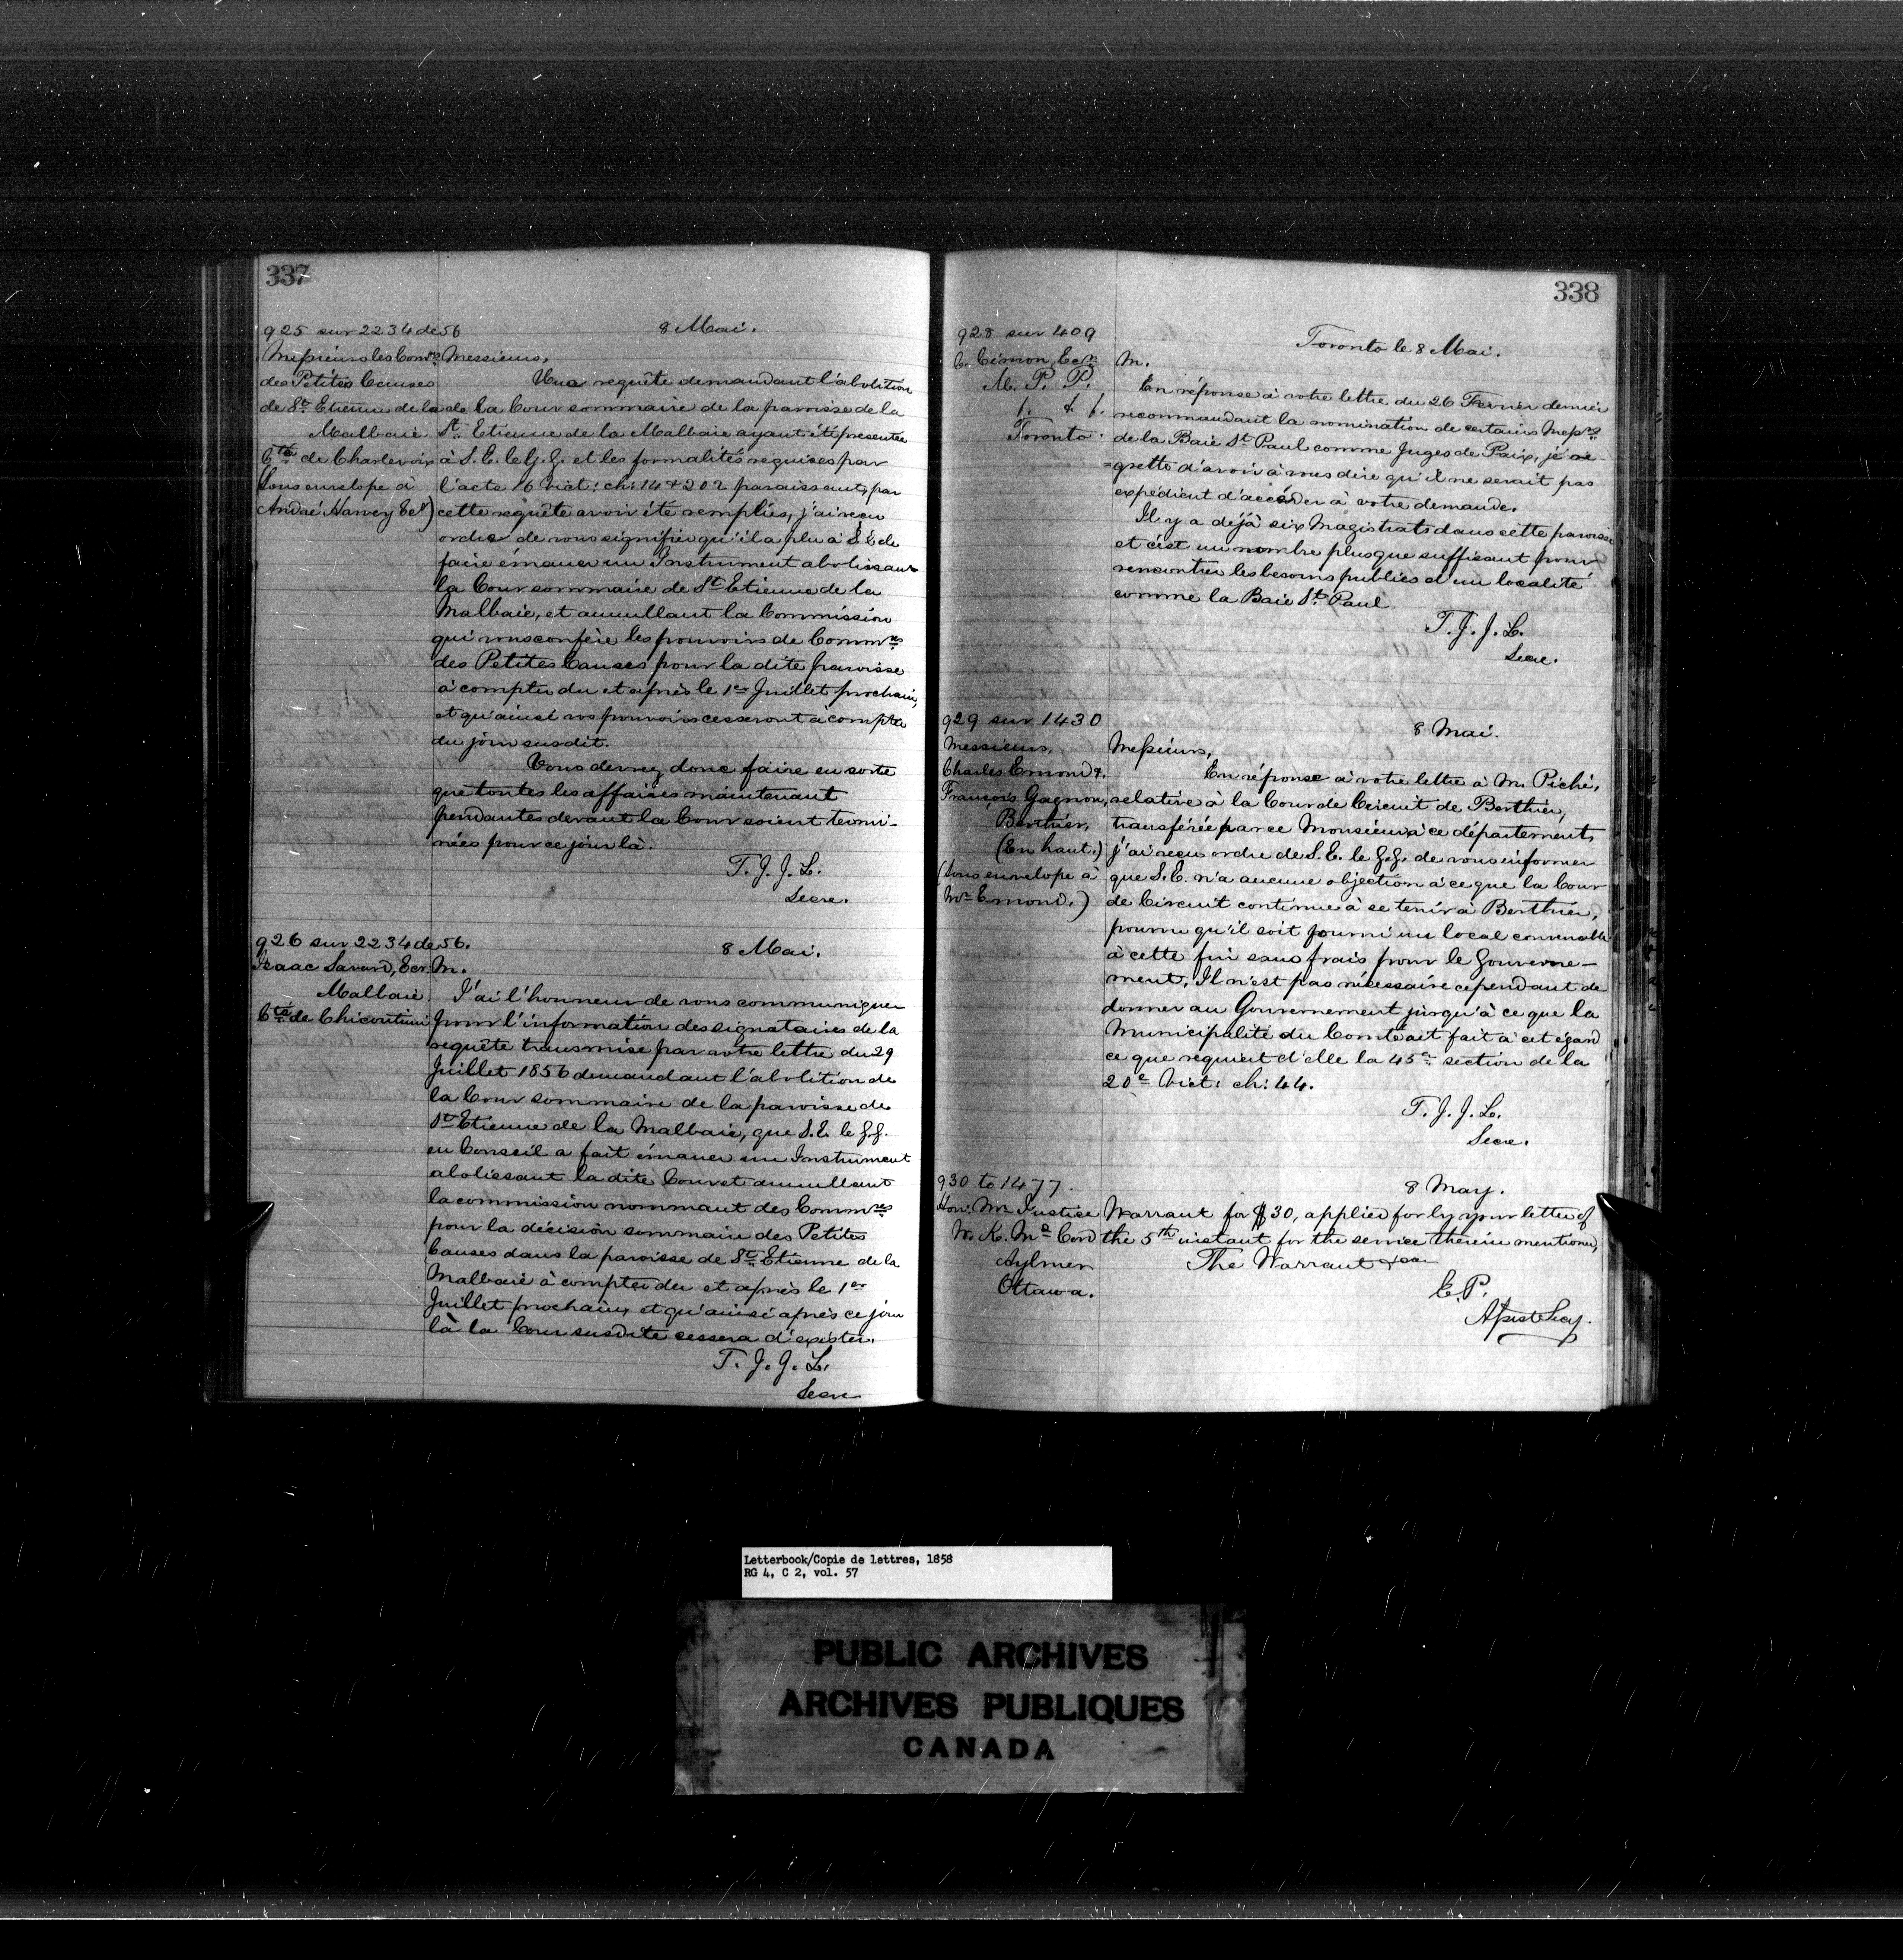 337
925 sur 2234 de 56
8 Mai.
Messieurs les Comres
des Petites Causes
de St Etienne de la
Malbaie.
Cté de Charlevoix
Sous envelope à
André Harvey Ecr)
Messieurs,
Une requête demandant l'abolition
de la Cour sommaire de la paroisse de la
St. Etienne de la Malbaie ayant été presentée
à S. E. le G. G. et les formalités requises par
l'acte 16 Vict: ch: 14 & 202 paraissant, par
cette requête avoir été remplies, j'ai reçu
ordre de vous signifier qu'il a plu à S. E. de
faire émaner un Instrument abolissant
la Cour sommaire de St Etienne de la
Malbaie, et annullant la Commission
qui vous confère les pouvoirs de Commres
des Petites Causes pour la dite paroisse
à compter du et après le 1er Juillet prochain,
et qu'ainsi vos pouvoirs cesseront à compter
du jour susdit.
Vous devrez donc faire en sorte
que toutes les affaires maintenant
pendantes devant la Cour soient termi-
nées pour ce jour là.
T. J. J. L.
Secre.
926 sur 2234 de 56.
8 Mai.
Isaac Savard, Ecr.
Malbaie.
Cté de Chicoutimi
M.
J'ai l'honneur de vous communiquer
pour l'information des signataires de la
requête transmise par votre lettre du 29
Juillet 1856 demandant l'abolition de
la Cour sommaire de la paroisse de
St Etienne de la Malbaie, que S. E. le G. G.
en Conseil a fait émaner un Instrument
abolissant la dite Cour et annullant
la commission nommant des Commres
pour la décision sommaire des Petites
Causes dans la paroisse de St. Etienne de la
Malbaie à compter du et après le 1er
Juillet prochain, et qu'ainsi après ce jour
là la Cour susdite cessera d'exister.
T. J. J. L.
Secre
338
928 sur 409
Toronto le 8 Mai.
C. Cimon, Ecr
M. P. P.
Toronto.
M.
En réponse à votre lettre du 26 Fevrier dernier
recommandant la nomination de certains Messrs
de la Baie St Paul comme Juges de Paix, je re-
=grette d'avoir à vous dire qu'il ne serait pas
expédient d'accéder à votre demande.
Il y a déjà six Magistrats dans cette paroisse
et c'est un nombre plus que suffisant pour
rencontrer les besoins publics d'un localité
comme la Baie St. Paul
T. J. J. L.
Secre.
929 sur 1430
8 Mai.
Messieurs,
Charles Emond &
François Gagnon,
Berthier,
(En haut.)
(Sous envelope à
Mr Emond.)
Messieurs,
En réponse à votre lettre à M. Piché,
relative à la Cour de Circuit de Berthier,
transférée par ce Monsieur à ce département,
j'ai reçu ordre de S. E. le G. G. de vous informer
que S. E. n'a aucune objection à ce que la Cour
de Circuit continue à se tenir à Berthier,
pourvu qu'il soit fourni un local convenable
à cette fin sans frais pour le Gouverne-
ment. Il n'est pas nécessaire cependant de
donner au Gouvernement jusqu'à ce que la
Municipalité du Comté ait fait à cet égard
ce que requiert d'elle la 45e section de la
20e Vict: ch: 44.
T. J. J. L.
Secre.
930 to 1477.
8 May.
Hon. Mr Justice
W. K. Mc Cord
Aylmer
Ottawa.
Warrant for $30, applied for by your letter of
the 5th instant for the service therein mentioned,
The Warrant &ca
E. P.
Assist Secy.
Letterbook/Copie de lettres, 1858
RG 4, C 2, vol. 57
PUBLIC ARCHIVES
ARCHIVES PUBLIQUES
CANADA